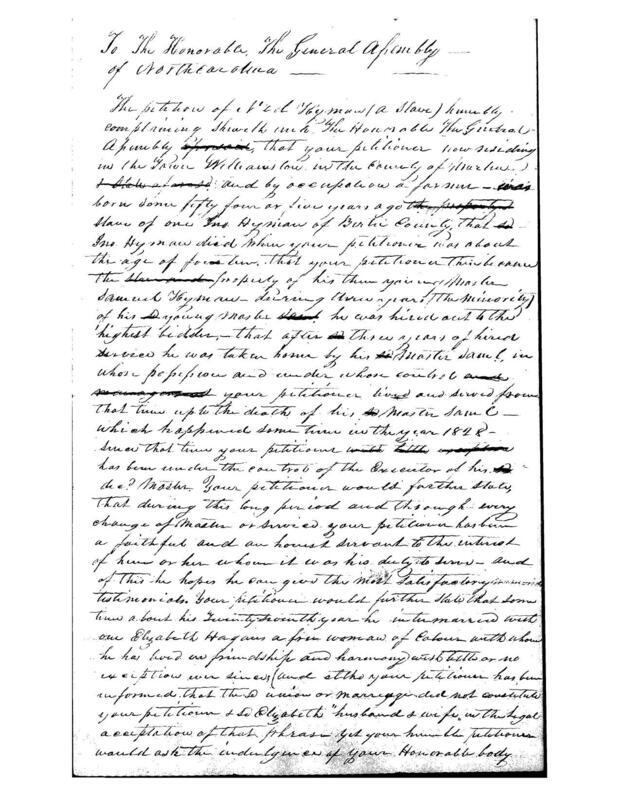 To The Honorable, The General Assembly
of North Carolina
The petition of Ned Hyman (A Slave) humbly
complaining sheweth unto The Honorable The General
Assembly that your petitioner now residing
in the Town Williamston in the County of Martin
and by occupation a farmer – was
born some fifty four or five years ago the property
slave of one Jno. Hyman of Bertie County, that sd
Jno Hyman died when your petitioner was about
the age of fourteen, that your petitioner then became
the slave and property of his then young Master
Samuel Hyman – during three years (the minority)
of his sd young master he was hired out to the
highest bidder, – that after sd three years of hired
service he was taken home by his sd Master Saml, in
whose possession and under whose control and
management your petitioner lived and served from
that time up to the death of his sd Master Saml –
which happened some time in the year 1828 –
since that time your petitioner with little exception
has been under the control of the Executor of his sd
decd Master. Your petitioner would further state,
that during this long period and through every
change of Master or service your petitioner has been
a faithful and an honest servant to the interest
of him or her whom it was his duty to serve – and
of this he hopes he can give the most satisfactory
testimonials. Your petitioner would further state that some
time about his Twenty Seventh year he intermarried with
one Elizabeth Hagans a free woman of Colour with whom
he has lived in friendship and harmony with little or no
exception ever since, (and altho your petitioner has been
informed that the sd union or marriage did not constitute
your petitioner & sd Elizabeth "husband & wife, in the legal
acceptation of that phrase yet your humble petitioner
would ask the indulgence of your Honorable body